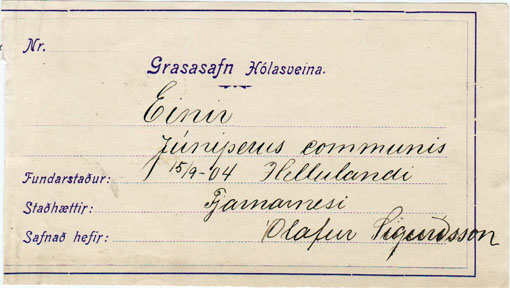 Nr.
Grasasafn Hólasveina.
Einir
Júniperus communis
Fundarstaður: 15/9-04 Hellulandi
Staðhættir: Tjarnarnesi
Safnað hefir: Olafur Sigurðsson